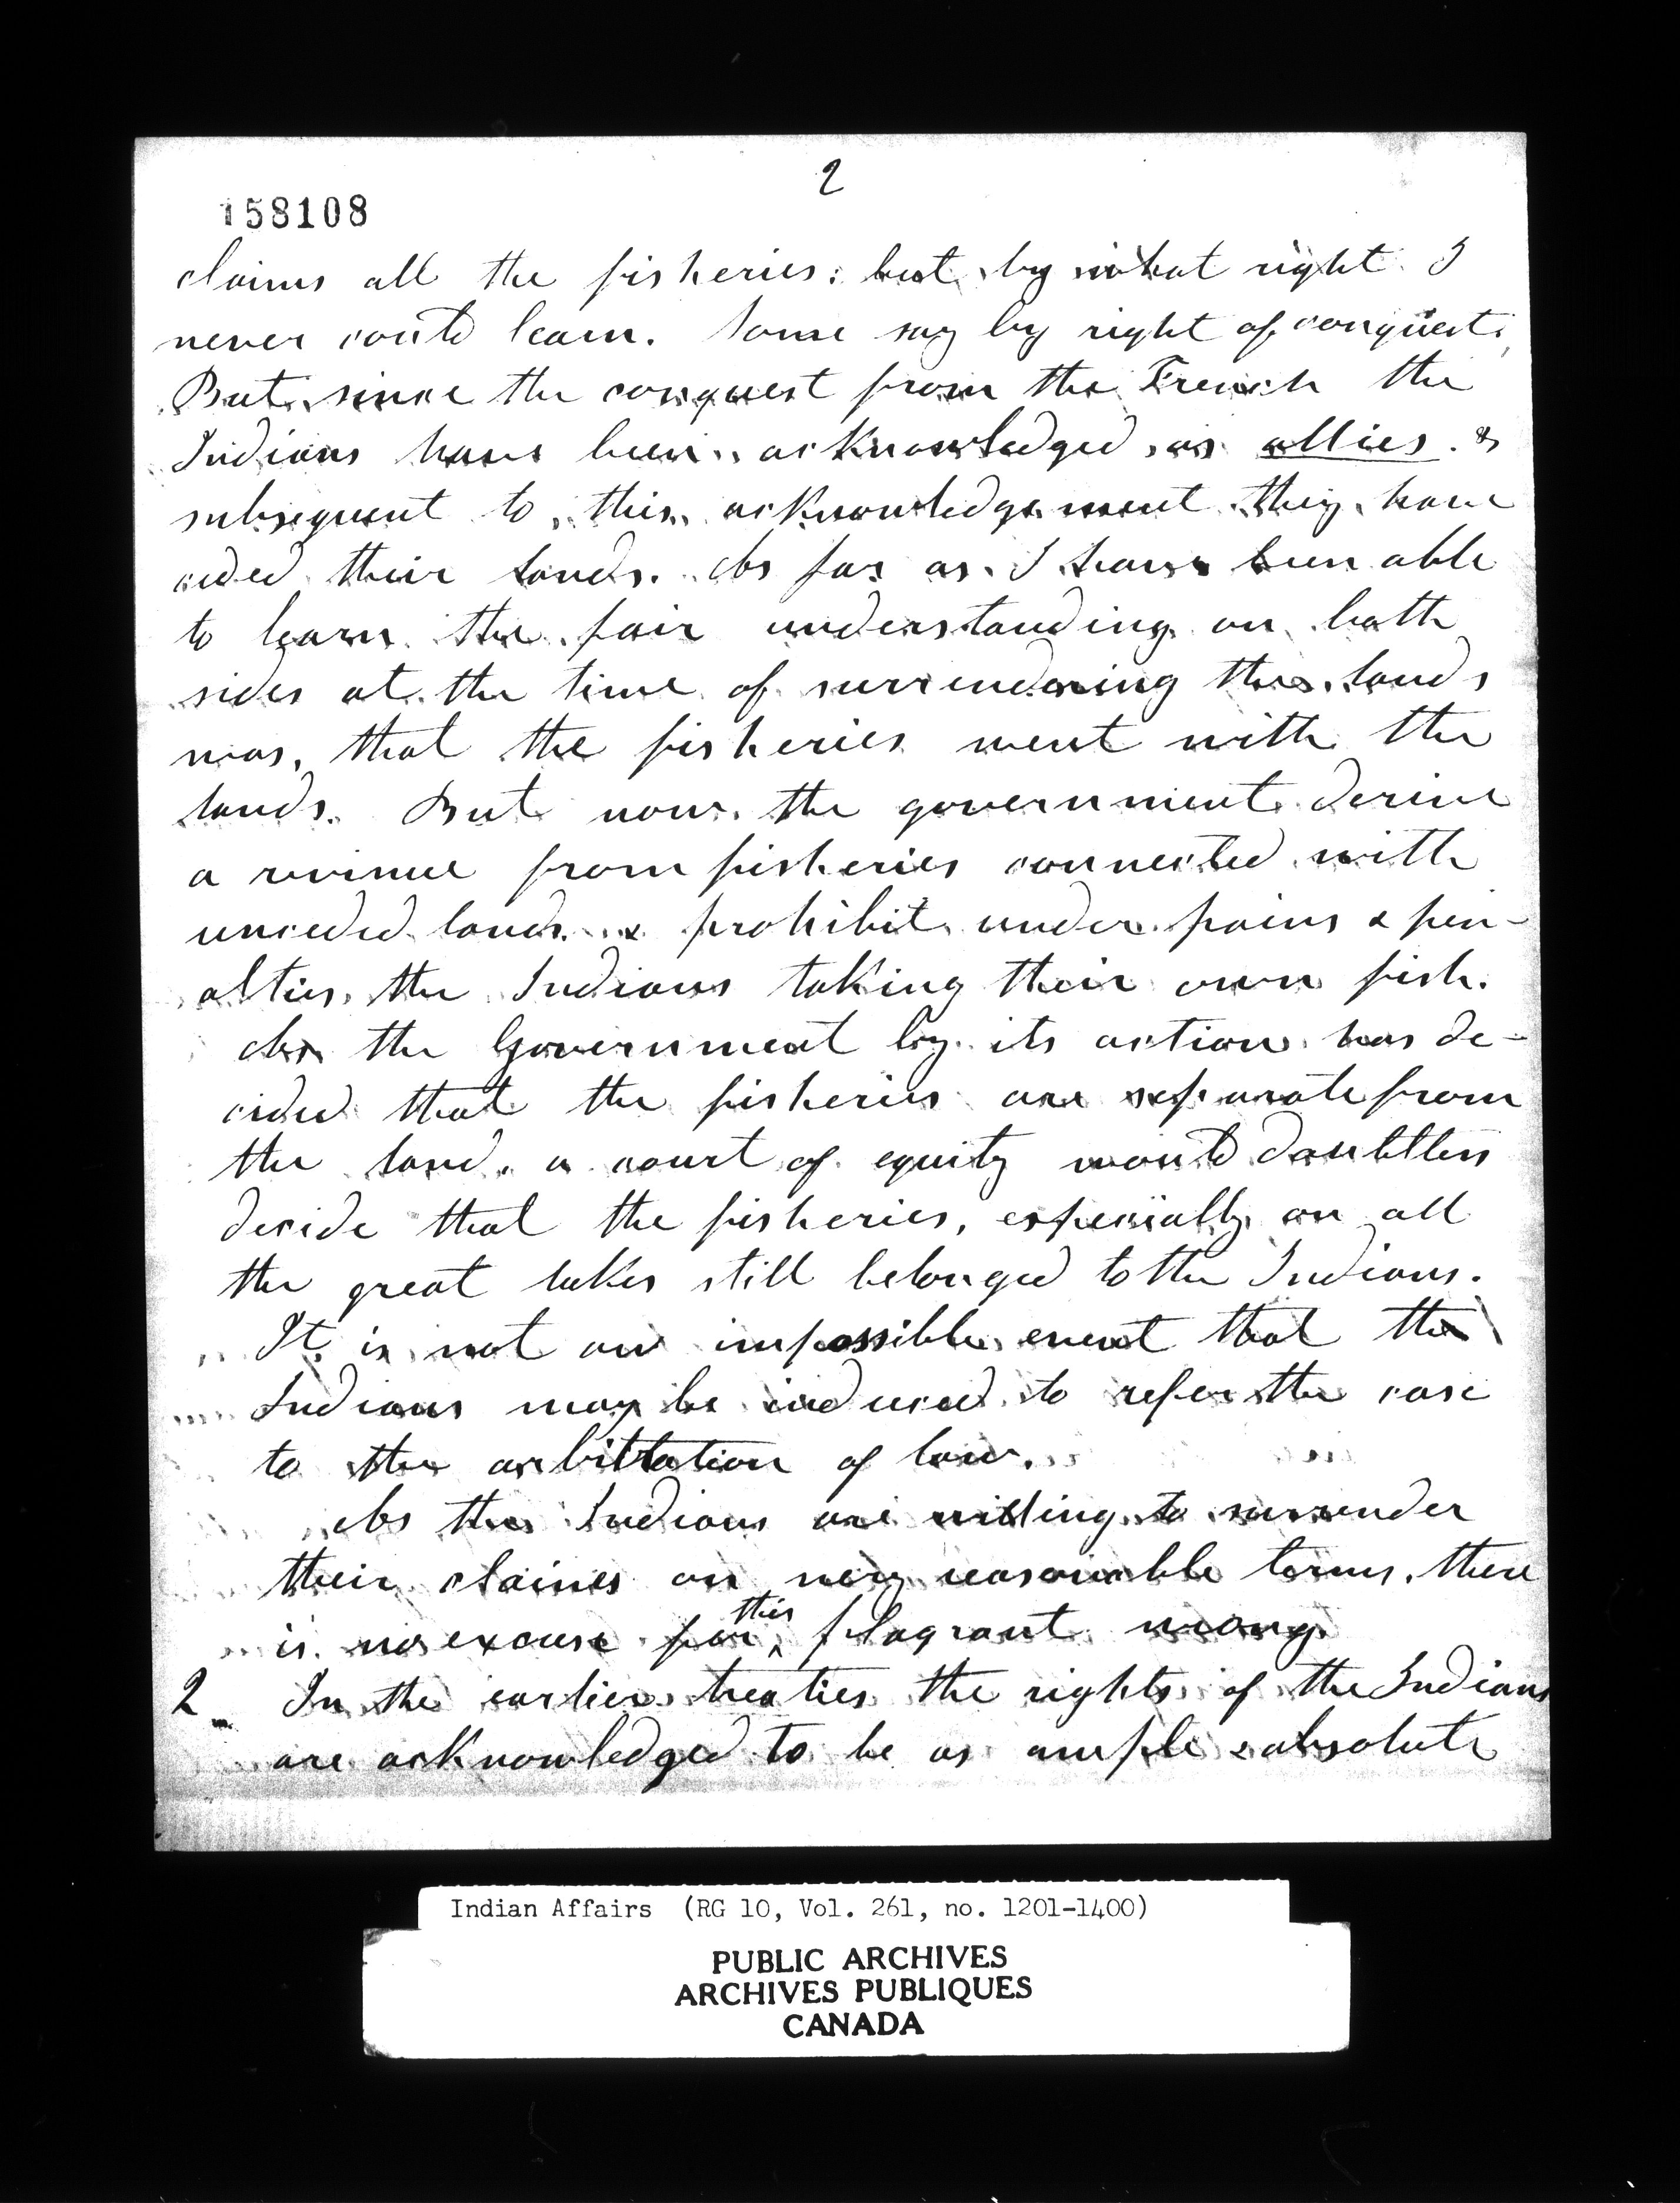 2
158108
claims all the fisheries: but by what right I
never could learn. Some say by right of conquest;
But since the conquest from the French the
Indians have been acknowledged as allies. &
subsequent to this acknowledgement they have
ceded their lands. As far as I have been able
to learn the fair understanding on both
sides at the time of surrendering the lands
was, that the fisheries went with the
lands. But now the government derive
a revinue from fisheries connected with
unceded lands & prohibit under pains & pen-
alties the Indians taking their own fish.
As the Government by its action has de-
cided that the fisheries are separate from
the land, a court of equity would doubtless
decide that the fisheries, especially on all
the great lakes still belonged to the Indians.
It is not an impossible event that the
Indians may be induced to refer the case
to the arbitration of law.
As the Indians are willing to surrender
their claims on very reasonable terms, there
is no excuse for this flagrant wrong.
2 In the earlier treaties the rights of the Indians
are acknowledged to be as ample & absolute
Indian Affairs (RG 10, Vol. 261, no. 1201-1400)
PUBLIC ARCHIVES
ARCHIVES PUBLIQUES
CANADA